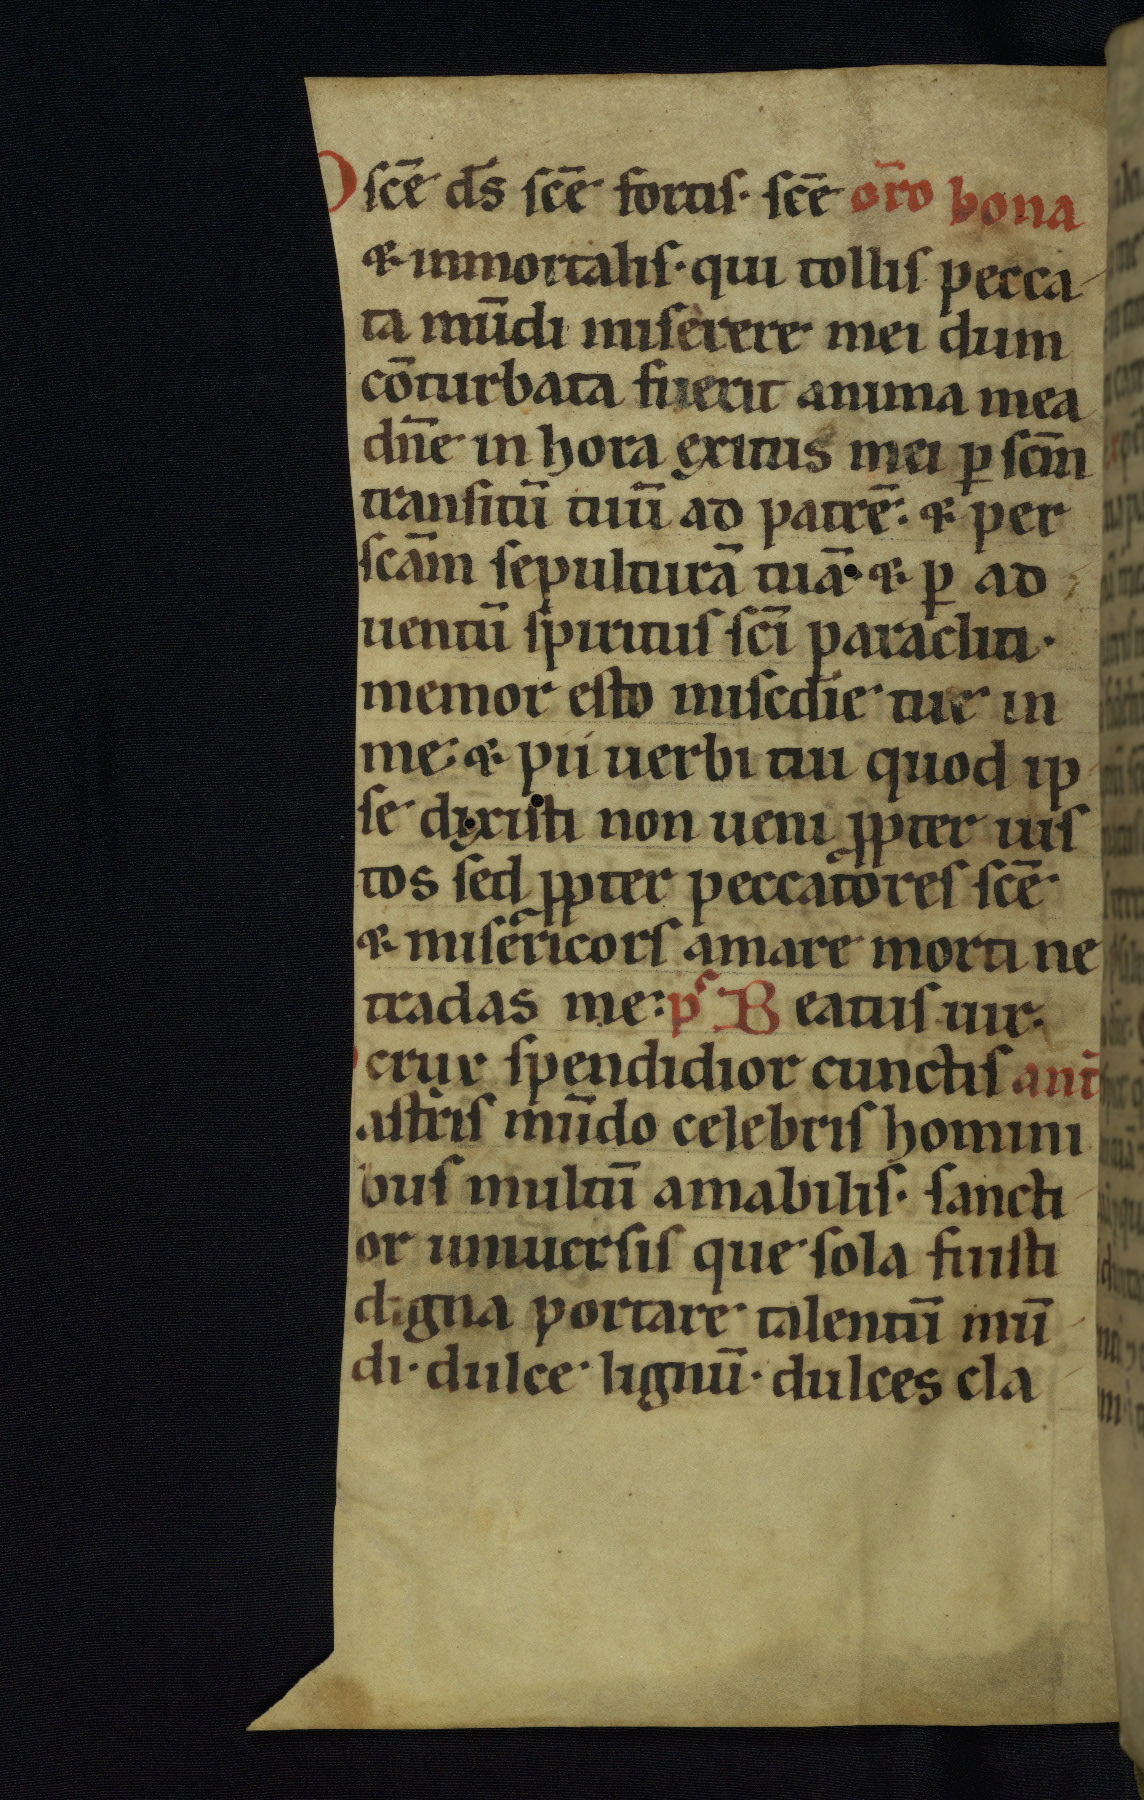 O sc̄e d̄s sc̄e fortis· sc̄e or̄o bona
& inmortalis· qui tollis pecca
ta mūdi miserere mei dum
cōturbata fuerit anima mea
dn̄e in hora exitus mei ꝑ sc̄m
transitū tuū ad patrē· & per
scām sepulturā tuā· & ꝑ ad
uentū spiritus sc̄i paracliti·
memor esto misc̄die tue in
me· & pii uerbi tui quod ip
se dixisti non ueni ꝓpter ius
tos sed ꝓpter peccatores sc̄e
& misericors amare morti ne
tradas me: p̄s Beatus uir·
O crux spendidior cunctis ant̄
astris mūdo celebris homini
bus multū amabilis· sancti
or uniuersis que sola fuisti
digna portare talentū mū
di· dulce· lignū· dulces cla